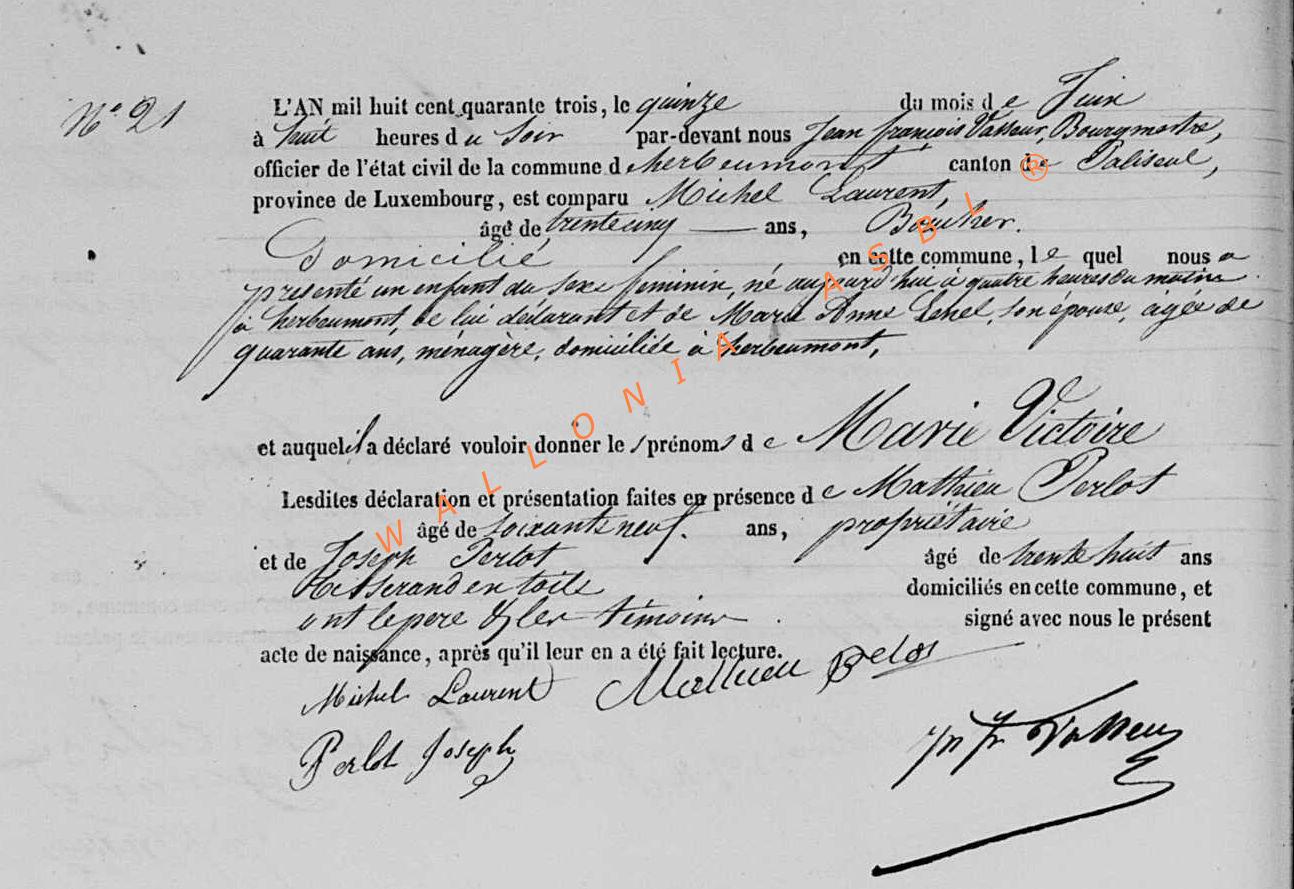 N° 21
L'AN mil huit cent quarante trois, le quinze du mois de Juin
à huit heures du Soir par-devant nous Jean françois Vasseur, Bourgmestre,
officier de l'état civil de la commune d herbeumont canton de Paliseul,
province de Luxembourg, est comparu Michel Laurent,
âgé de trente cinq ans,
Domicilié en cette commune, le quel nous a
présenté un enfant du sexe féminin, né aujourd'hui à quatre heures du matin
à herbeumont, de lui déclarant et de Marie Anne son épouse, agée de
quarante ans, ménagère, domiciliée à herbeumont,
et auquel il a déclaré vouloir donner les prénoms de Marie Victoire
Lesdites déclaration et présentation faites en présence de Mathieu Perlot
âgé de soixante neuf ans, propriétaire
et de Joseph Perlot âgé de trente huit ans
tisserand en toile domiciliés en cette commune, et
ont le pere & les témoins signé avec nous le présent
acte de naissance, après qu'il leur en a été fait lecture.
Michel Laurent Mathieu
Perlot Joseph Jn fr Vasseur
WALLONIA ASBL ®